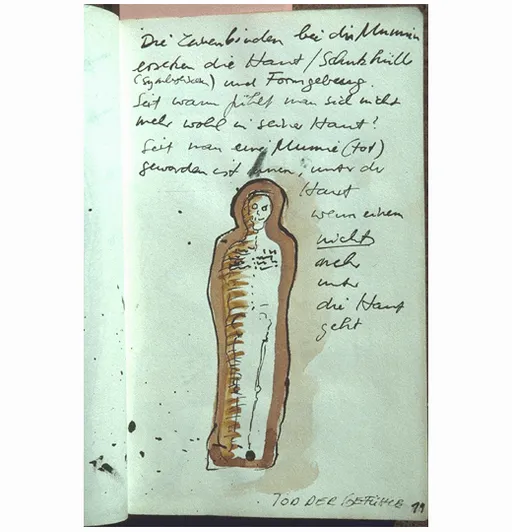 Die Leinenbinden bei der Mumie
ersetzen die Haut / Schutzhülle
(symbolisch) und Formgebung.
Seit wann fühlt man sich nicht
mehr wohl in seiner Haut?
Seit man eine Mumie (tot)
geworden ist innen, unter der
Haut
wenn einem
nicht
mehr
unter
die Haut
geht
TOD DER GEFÜHLE 99